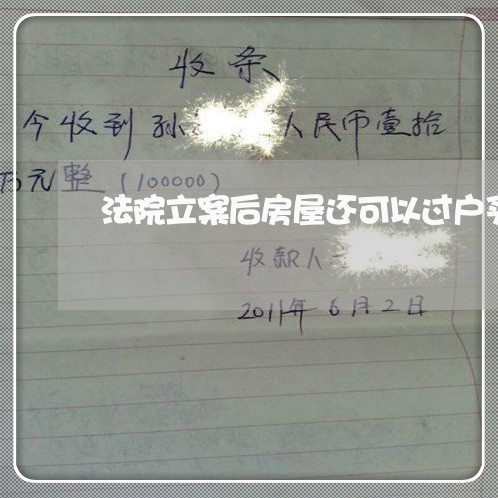 收条
今收到孙 人民币壹拾
万元整(100000)
法院立案后房屋还可以过户
收款人
2011年6月2日